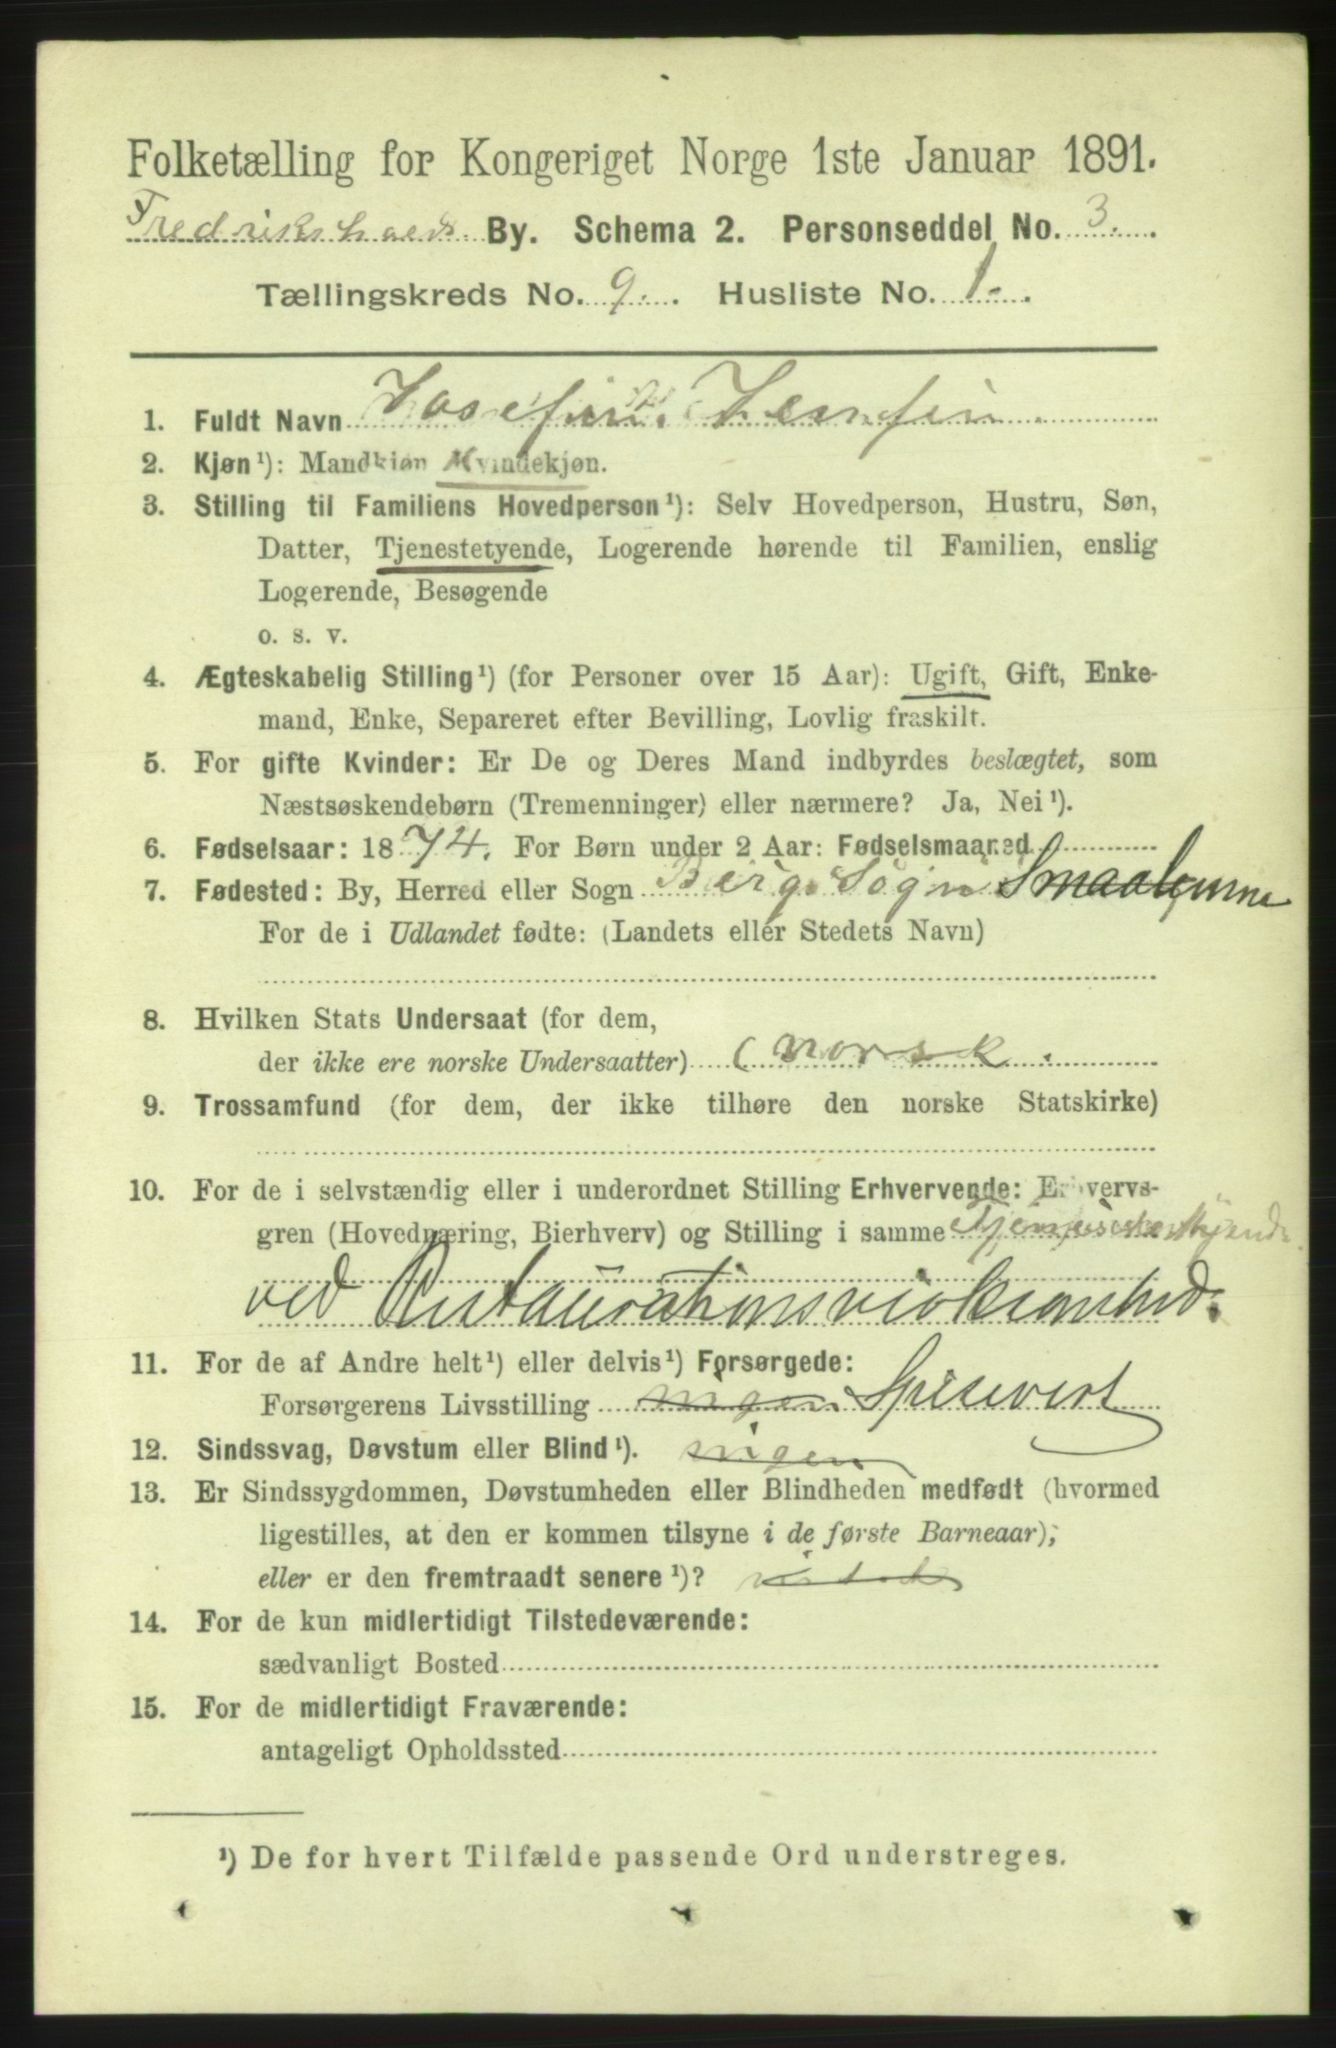 Folketælling for Kongeriget Norge 1ste Januar 1891.
Fredrikshalds By. Schema 2. Personseddel No. 3.
Tællingskreds No. 9. Husliste No. 1.
1. Fuldt Navn Josefine
2. Kjøn¹): Mandkjøn Kvindekjøn.
3. Stilling til Familiens Hovedperson¹): Selv Hovedperson, Hustru, Søn,
Datter, Tjenestetyende, Logerende hørende til Familien, enslig
Logerende, Besøgende
o. s. v.
4. Ægteskabelig Stilling¹) (for Personer over 15 Aar): Ugift, Gift, Enke-
mand, Enke, Separeret efter Bevilling, Lovlig fraskilt.
5. For gifte Kvinder: Er De og Deres Mand indbyrdes beslægtet, som
Næstsøskendebørn (Tremenninger) eller nærmere? Ja, Nei¹).
6. Fødselsaar: 1874. For Børn under 2 Aar: Fødselsmaaned
7. Fødested: By, Herred eller Sogn Berg Sogn Smaalenene
For de i Udlandet fødte: (Landets eller Stedets Navn)
8. Hvilken Stats Undersaat (for dem,
der ikke ere norske Undersaatter) (norsk.
9. Trossamfund (for dem, der ikke tilhøre den norske Statskirke)
10. For de i selvstændig eller i underordnet Stilling Erhvervende: Erhvervs-
gren (Hovednæring, Bierhverv) og Stilling i samme
ved Restaurationsvirksomhed.
11. For de af Andre helt¹) eller delvis¹) Forsørgede:
Forsørgerens Livsstilling ingen Spisevert
12. Sindssvag, Døvstum eller Blind¹). ingen
13. Er Sindssygdommen, Døvstumheden eller Blindheden medfødt (hvormed
ligestilles, at den er kommen tilsyne i de første Barneaar);
eller er den fremtraadt senere¹)?
14. For de kun midlertidigt Tilstedeværende:
sædvanligt Bosted
15. For de midlertidigt Fraværende:
antageligt Opholdssted
¹) De for hvert Tilfælde passende Ord understreges.